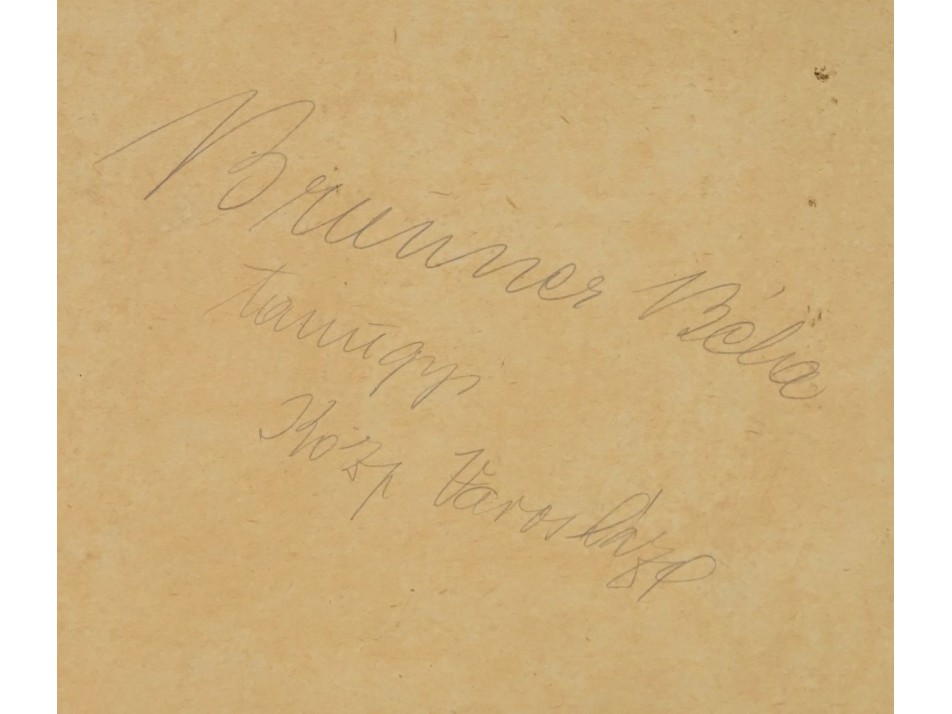 Brunner Béla
tanügyi
Közp Városház